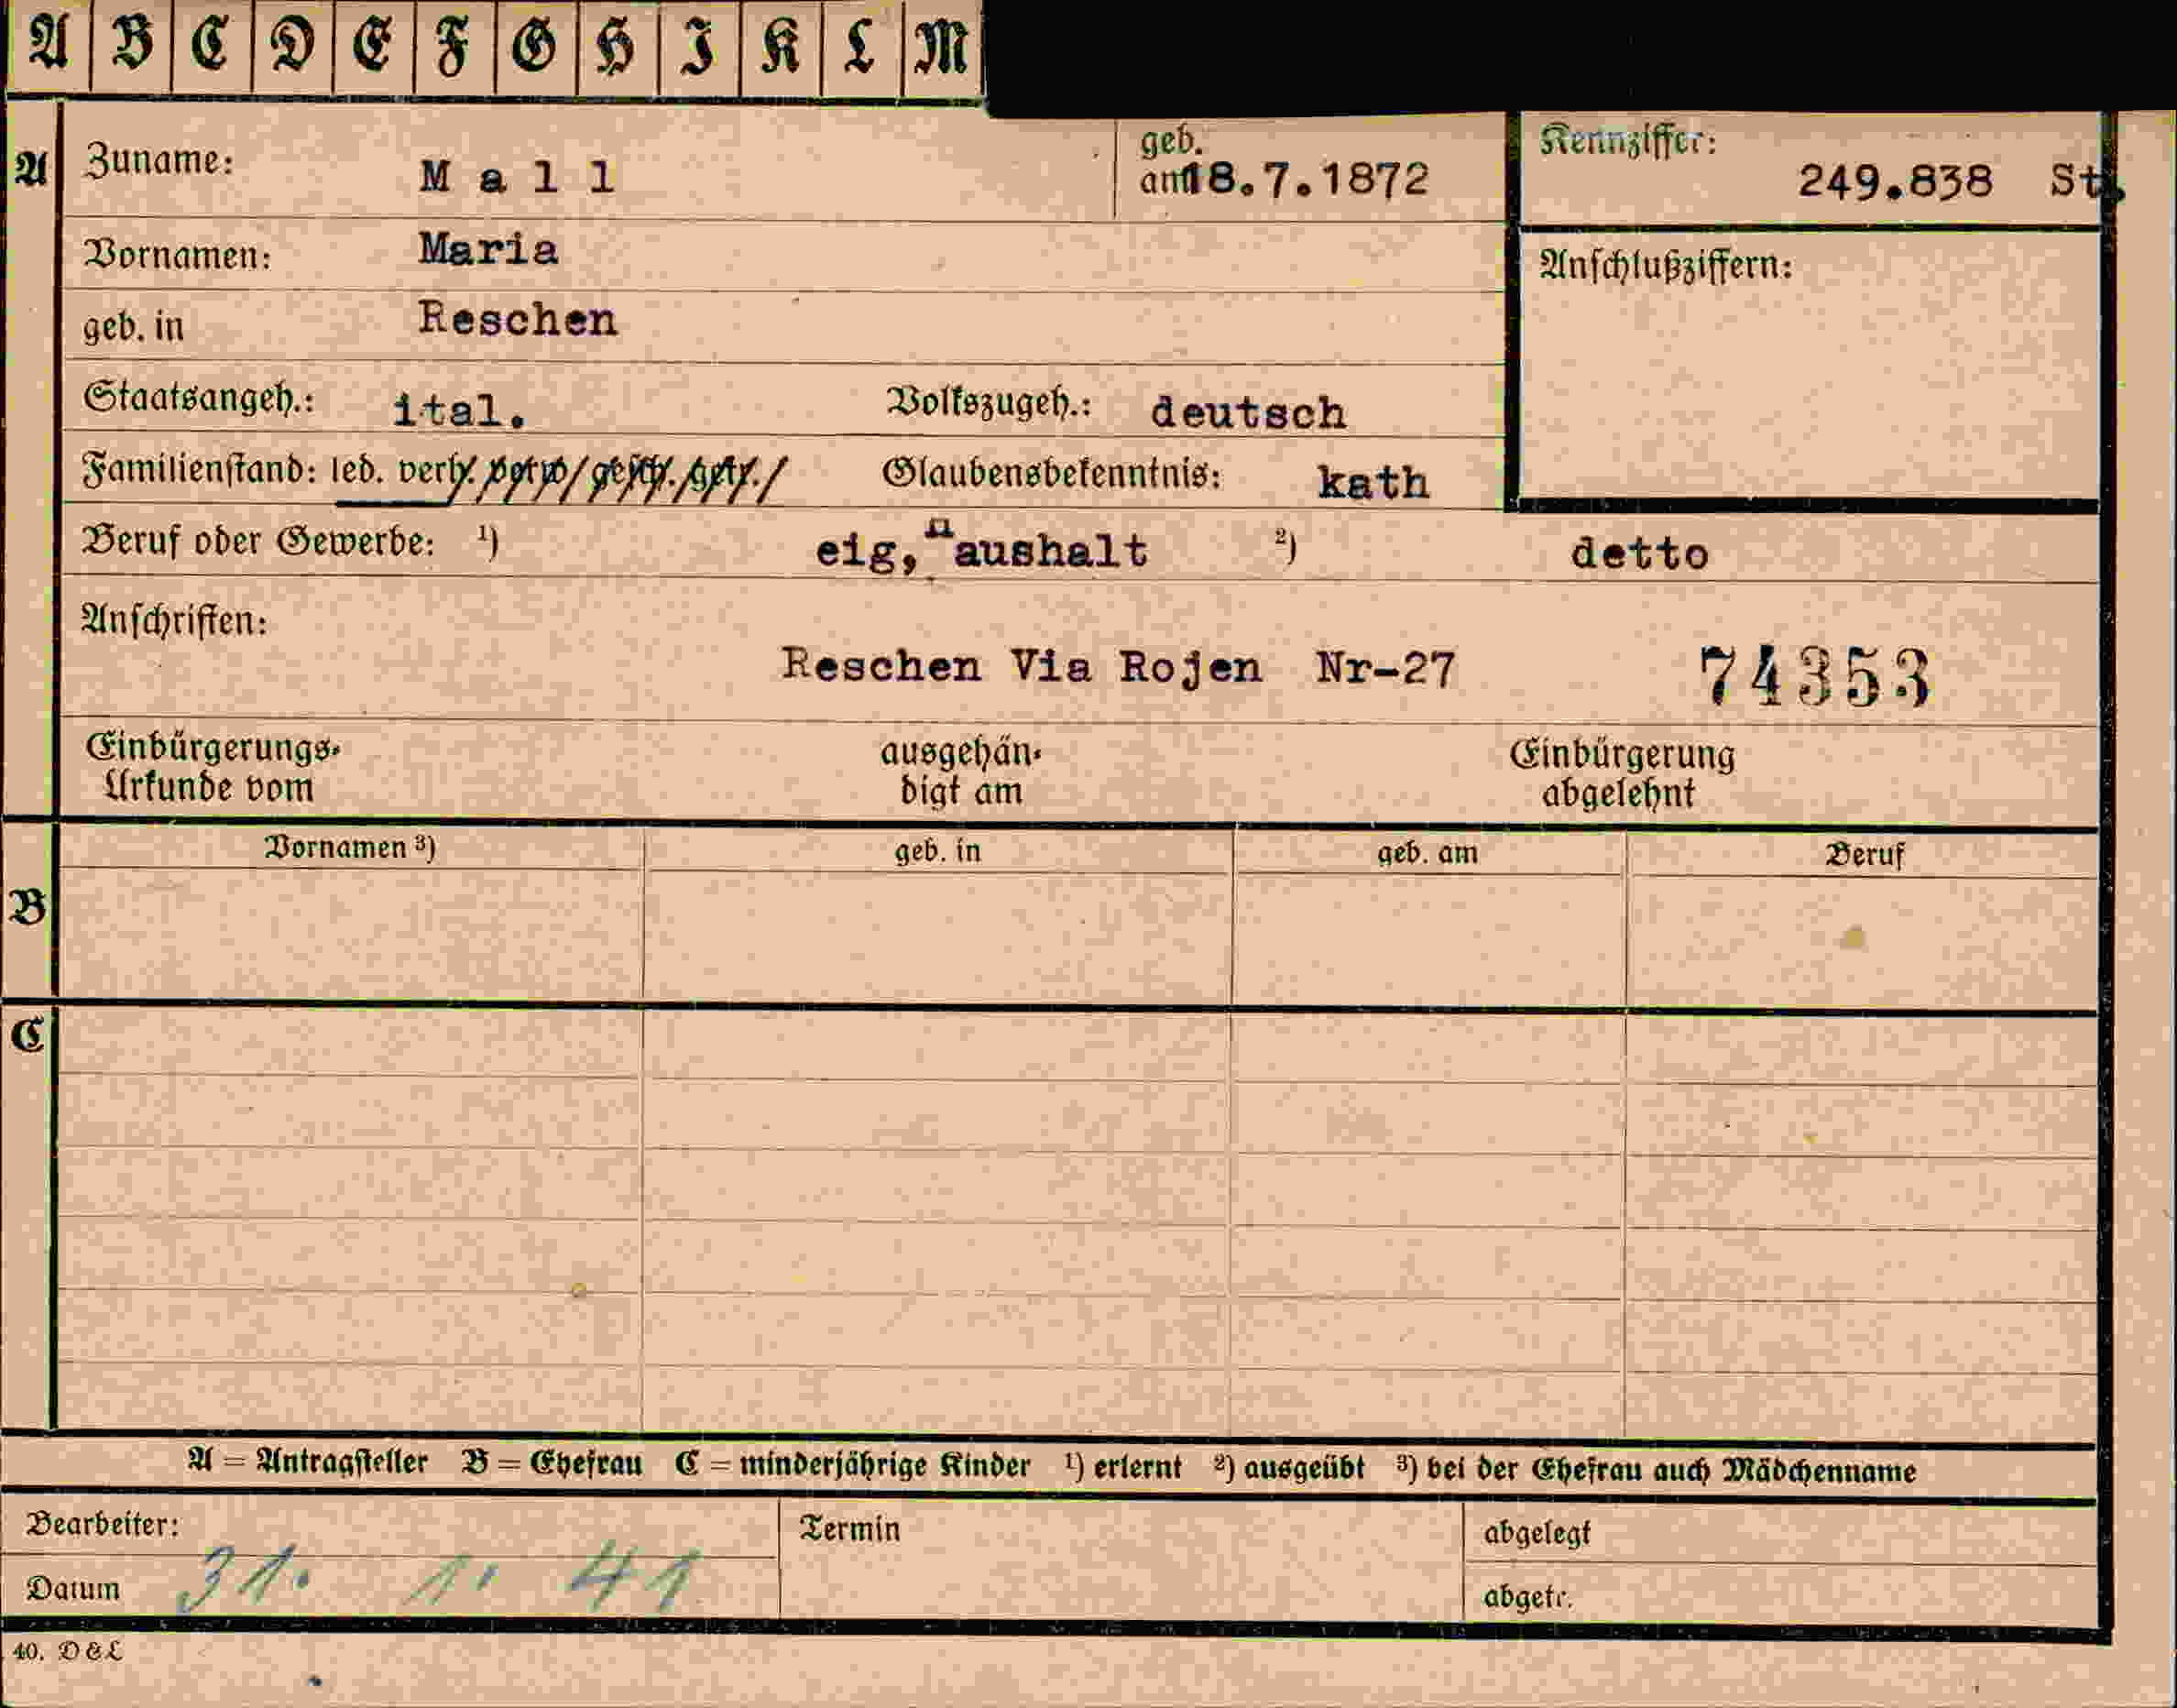 A B C D E F G H I K L M
A Zuname: Mall geb. am 18.7.1872 Kennziffer: 249.838 St.
Vornamen: Maria Anschlußziffern:
geb. in Reschen
Staatsangeh.: ital. Volkszugeh.: deutsch
Familienstand: led. verh. verw. gesch. getr. Glaubensbekenntnis: kath
Beruf oder Gewerbe: ¹) eig, Haushalt ²) detto
Anschriften:
Reschen Via Rojen Nr-27 74353
Einbürgerungs- ausgehän- Einbürgerung
Urkunde vom digt am abgelehnt
Vornamen ³) geb. in geb. am Beruf
B
C
A = Antragsteller B = Ehefrau C = minderjährige Kinder ¹) erlernt ²) ausgeübt ³) bei der Ehefrau auch Mädchenname
Bearbeiter: Termin abgelegt
Datum 31. 1. 41 abgetr.
40. D&L